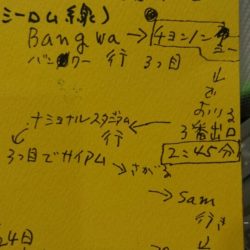 シーロム線)
Bangwa → チョンノン
バンワー 行 3つ目
で
おりる
ナショナルスタジアム 3番出口
行 2:45分
3つ目でサイアム
→ さがる
→ Sam
行き
24日